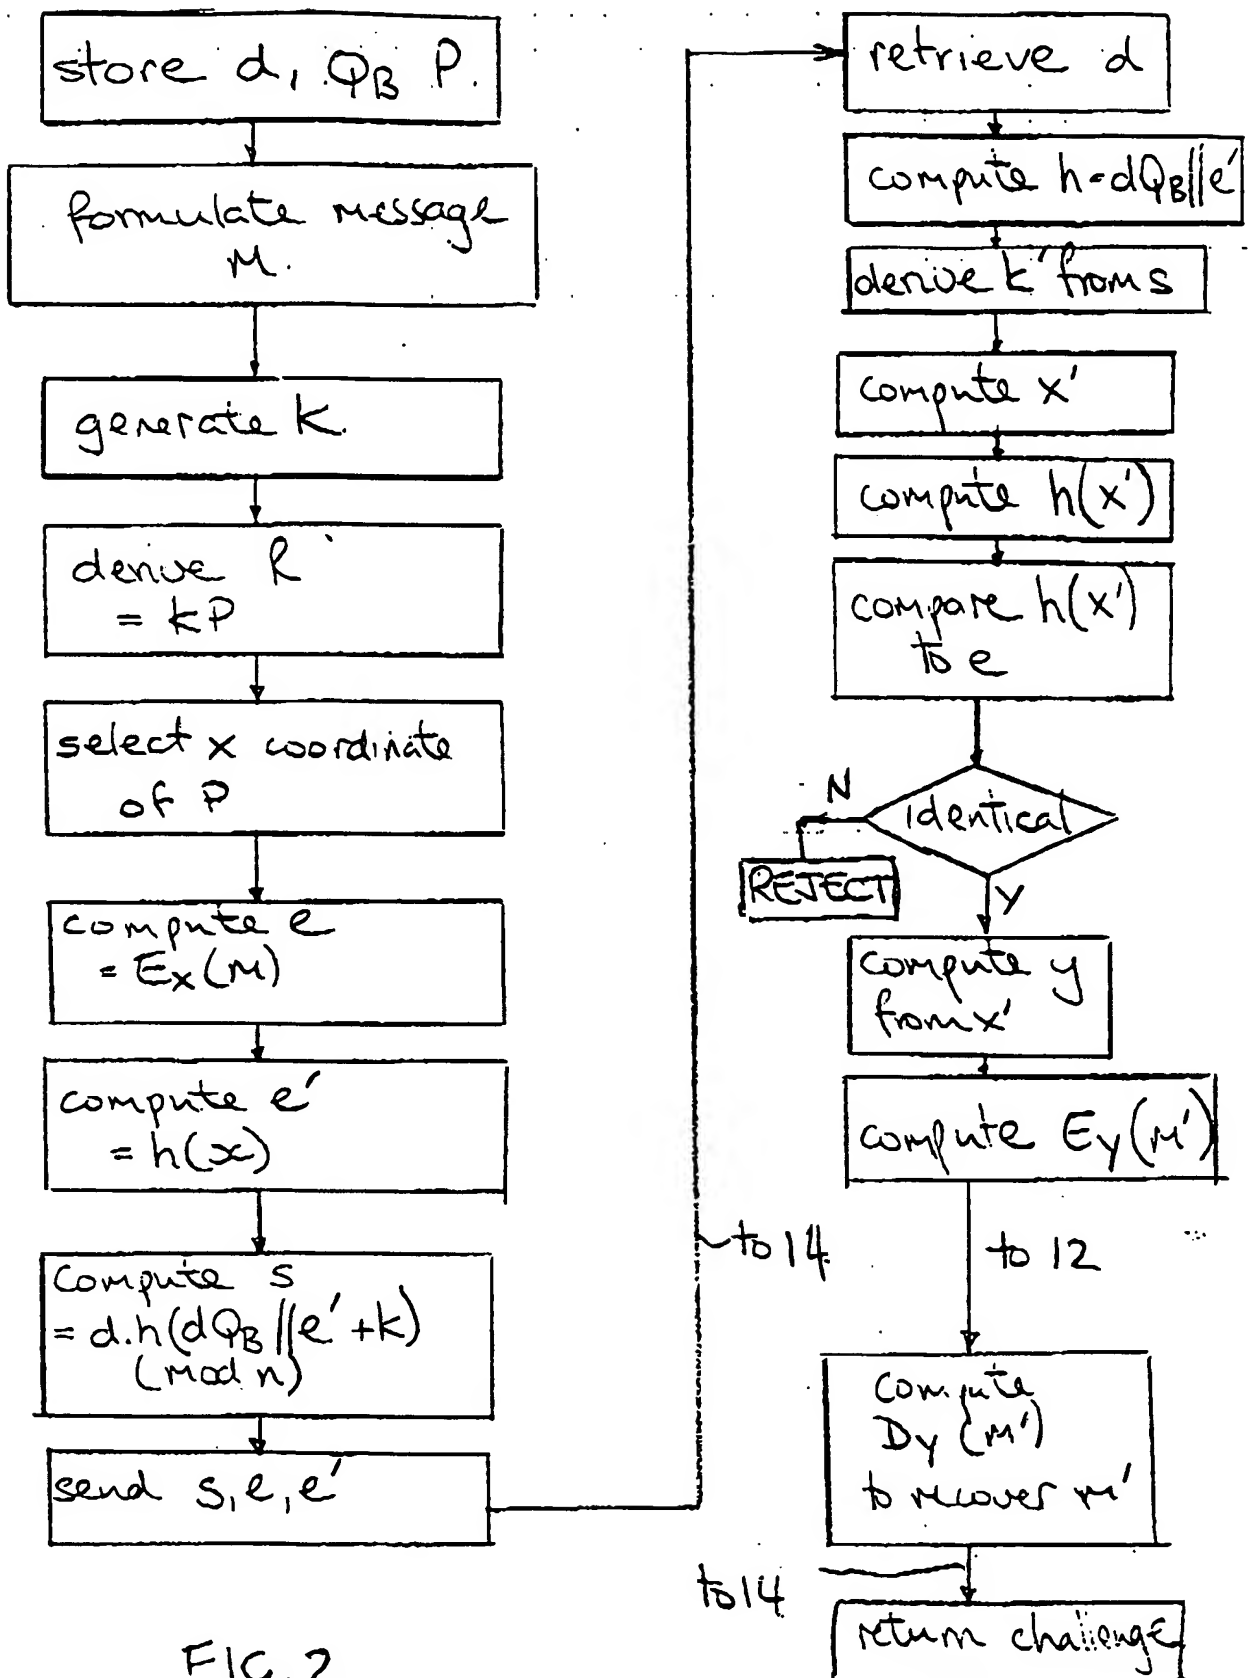 store d, QB P.
formulate message
M.
generate k.
derive R
= kP
select x coordinate
of P
compute e
= Ex(M)
compute e'
= h(x)
compute s
= d.h(dQB||e'+k)
(mod n)
send s,e,e'
FIG. 2
retrieve d
compute h=dQB||e'
derive k' from s
compute x'
compute h(x')
compare h(x')
to e
identical
N
REJECT
Y
compute y
from x'
compute Ey(m')
to 14
to 12
compute
Dy (m')
to recover m'
to 14
return challenge